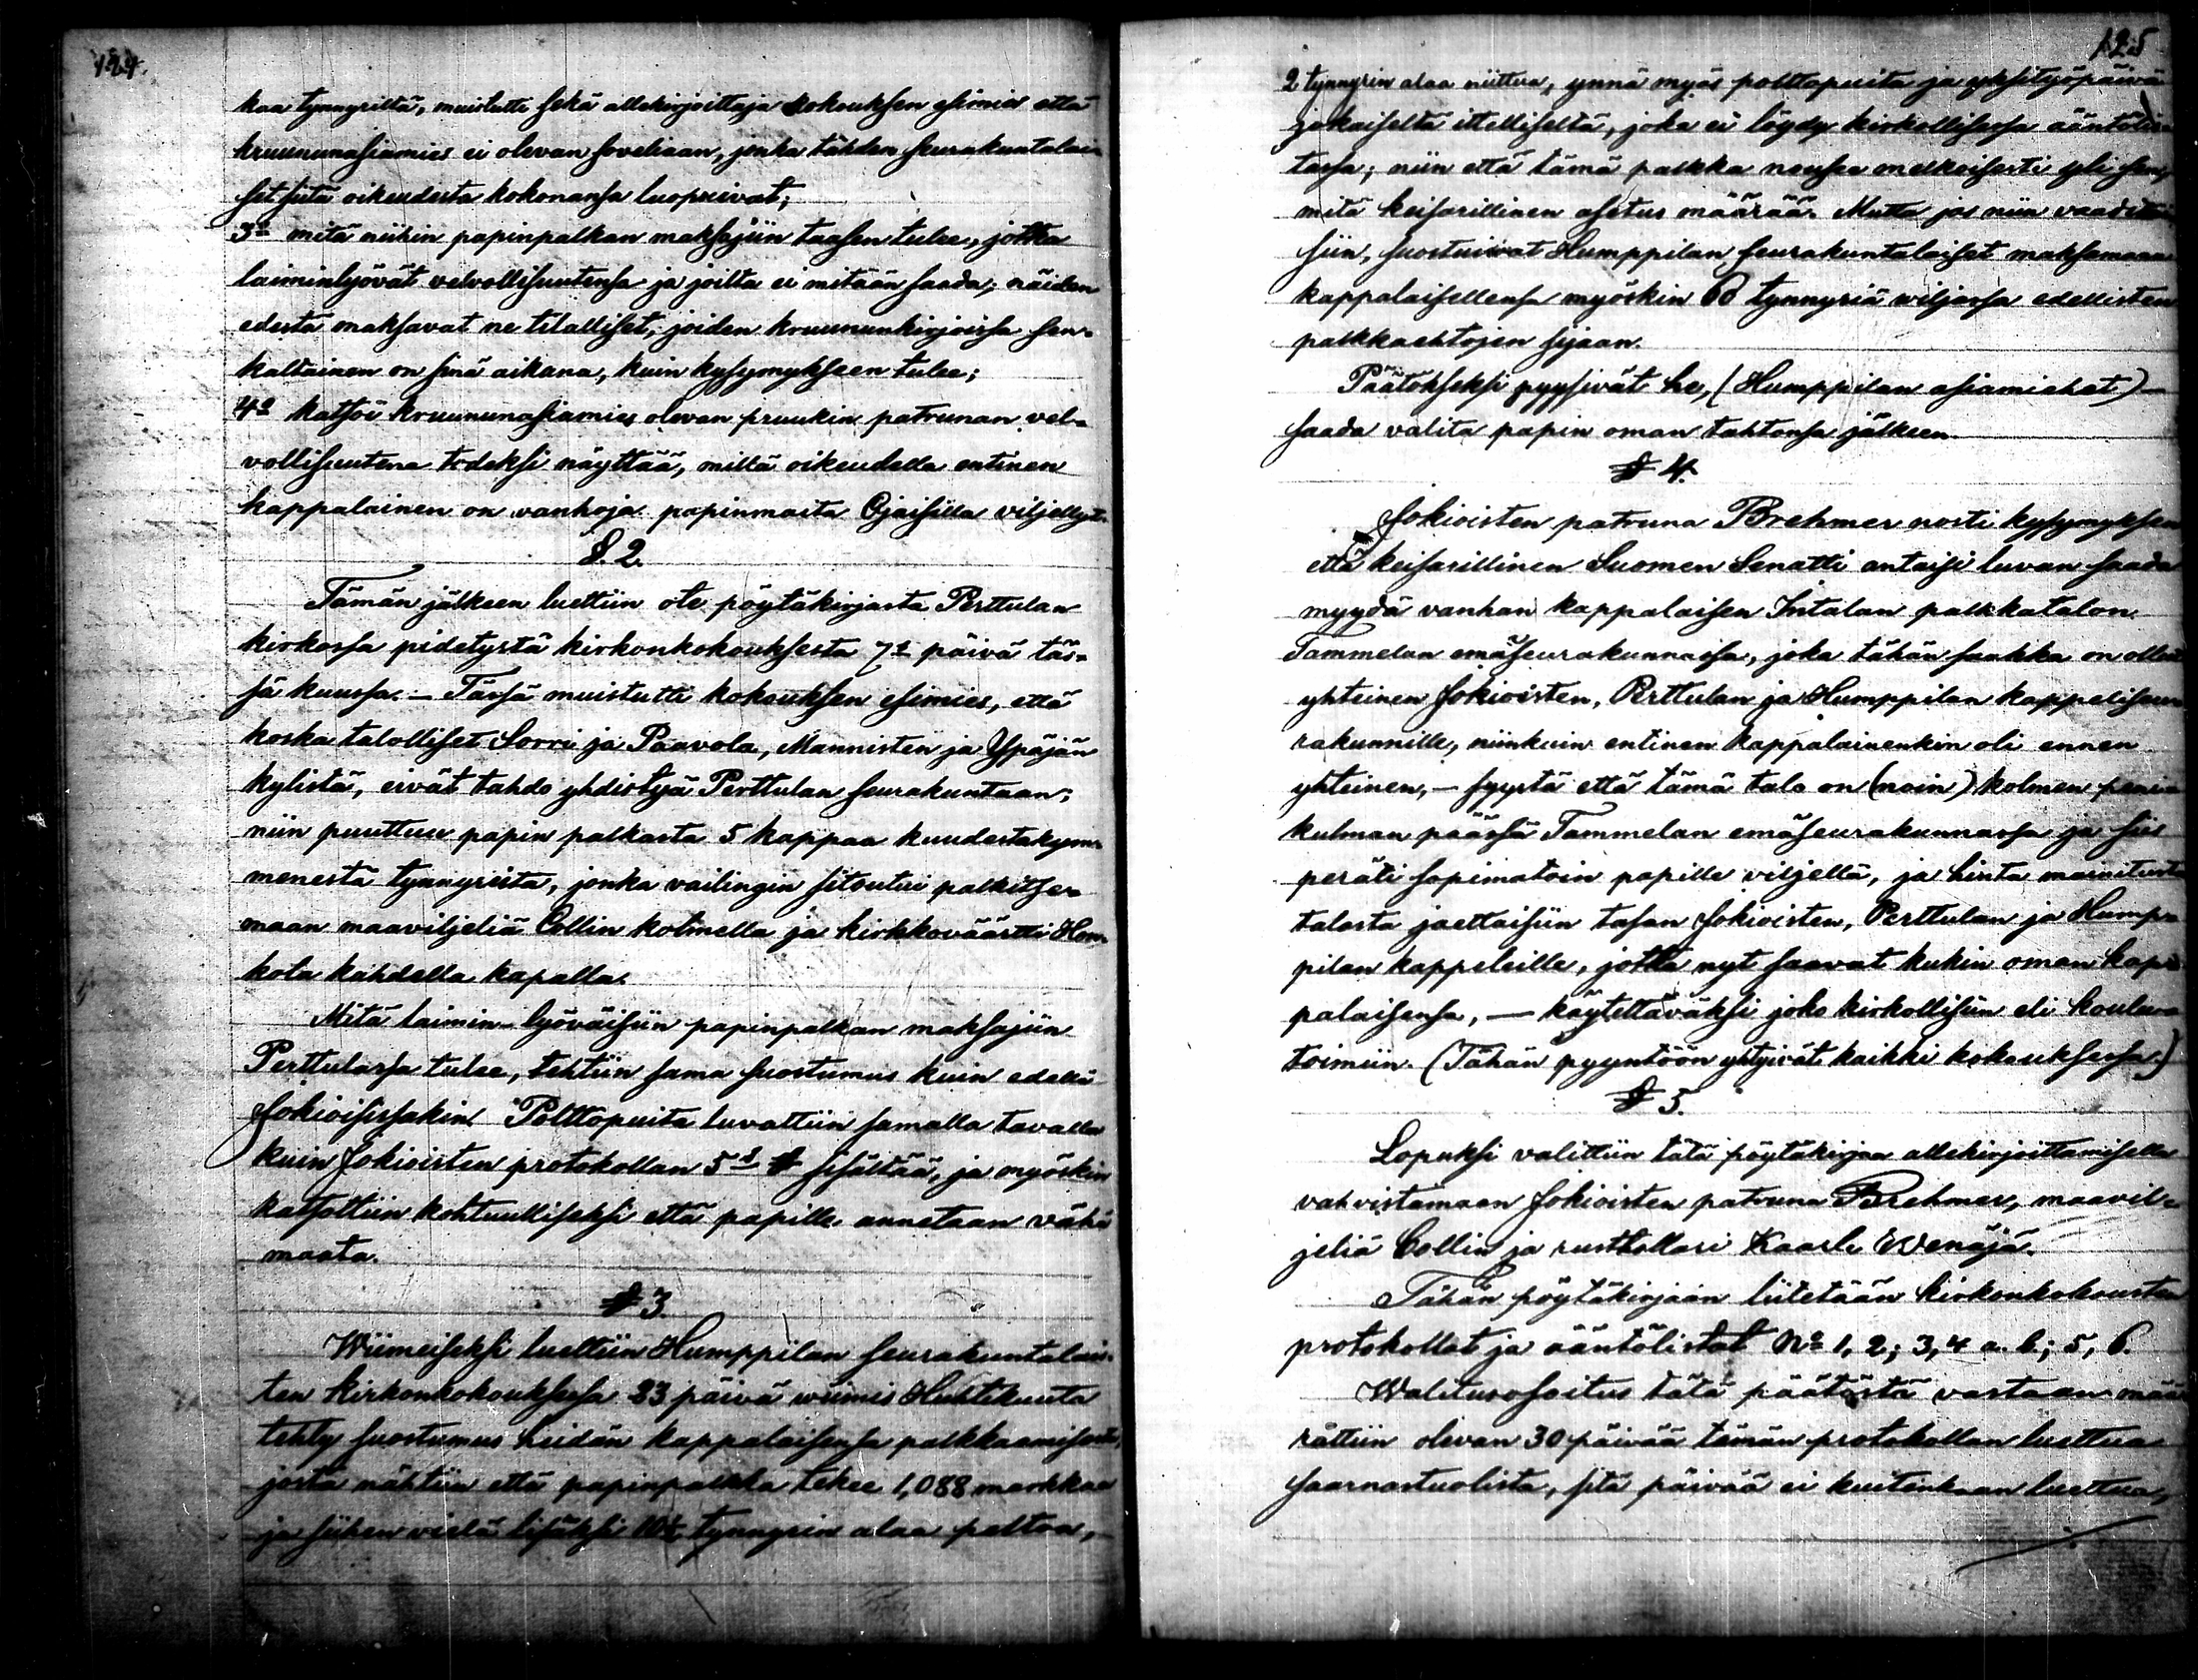 124.
kaa tynnyriltä, muistutti sekä allekirjoittaja kokouksen esimies että
kruununasiamies ei olevan soveliaan, jonka tähden seurakuntalai-
set siitä oikeudesta kokonansa luopuivat;
3o mitä niihin papinpalkan maksajiin taasen tulee, jotka
laiminlyövät velvollisuutensa ja joilta ei mitään saada; näiden
edestä maksavat ne tilalliset, joiden kruununkirjoissa sen-
kaltainen on sinä aikana, kuin kysymykseen tulee;
4o katsoi kruununasiamies olevan pruukin patrunan vel-
vollisuutena todeksi näyttää, millä oikeudella entinen
kappalainen on vanhoja papinmaita Ojaisilla viljellyt.
§. 2.
Tämän jälkeen luettiin ote pöytäkirjasta Perttulan
kirkossa pidetystä kirkonkokouksesta 7s päivä täs-
sä kuussa. — Tässä muistutti kokouksen esimies, että
koska talolliset Sorri ja Paavola, Mannisten ja Ypäjän
kylistä, eivät tahdo yhdistyä Perttulan seurakuntaan;
niin puuttuu papin palkasta 5 kappaa kuudestakym-
menestä tynnyristä, jonka vailingin sitoutui palkitse-
maan maaviljeliä Collin kolmella ja kirkkoväärtti Hon-
kola kahdella kapalla.
Mitä laimin-lyöväisiin papinpalkan maksajiin
Perttulassa tulee, tehtiin sama suostumus kuin edellä
Jokioisissakin. Polttopuita luvattiin samalla tavalla
kuin Jokioisten protokollan 5s § sisältää, ja myöskin
katsottiin kohtuulliseksi että papille annetaan vähä
maata.
§ 3.
Wiimeiseksi luettiin Humppilan seurakuntalais-
ten kirkonkokouksessa 23 päivä wiimis Huhtikuuta
tehty suostumus heidän kappalaisensa palkkaamisesta,
josta nähtiin että papinpalkka tekee 1,088 markkaa
ja siihen vielä lisäksi 10½ tynnyrin alaa peltoa,
125
2 tynnyrin alaa niittua, ynnä myös polttopuita ja yksi työpäivä
jokaiselta itelliseltä, joka ei löydy kirkollisessa ääntölis-
tassa; niin että tämä palkka nousee melkoisesti yli sen,
mitä keisarillinen asetus määrää. Mutta jos niin vaadittai-
siin, suostuivat Humppilan seurakuntalaiset maksamaan
kappalaisellensa myöskin 60 tynnyriä wiljassa edellisten
palkkaehtojen sijaan.
Päätökseksi pyysivät he, (Humppilan asiamiehet) —
saada valita papin oman tahtonsa jälkeen.
§ 4.
Jokioisten patruna Brehmer nosti kysymyksen
että keisarillinen Suomen Senatti antaisi luvan saada
myydä vanhan kappalaisen Intalan palkkatalon
Tammelan emäseurakunnassa, joka tähän saakka on ollut
yhteinen Jokioisten, Perttulan ja Humppilan kappeliseu-
rakunnille, niinkuin entinen kappalainenkin oli ennen
yhteinen, — syystä että tämä talo on (noin) kolmen penin-
kulman päässä Tammelan emäseurakunnassa ja siis
peräti sopimatoin papille viljellä, ja hinta mainitusta
talosta jaettaisiin tasan Jokioisten, Perttulan ja Hump-
pilan kappeleille, jotka nyt saavat kukin oman kap-
palaisensa, — käytettäväksi joko kirkollisiin eli koulu-
toimiin. (Tähän pyyntöön yhtyivät kaikki kokouksessa.)
§ 5.
Lopuksi valittiin tätä pöytäkirjaa allekirjoittamisella
vahvistamaan Jokioisten patruna Brehmer, maavil-
jeliä Collin ja rusthollari Kaarle Wenäjä.
Tähän pöytäkirjaan liitetään kirkonkokousten
protokollat ja ääntölistat No 1, 2; 3, 4 a. b; 5, 6.
Walitusosoitus tätä päätöstä vastaan mää-
rättiin olevan 30 päivää tämän protokollan luettua
saarnastuolista, sitä päivää ei kuitenkaan luettua,